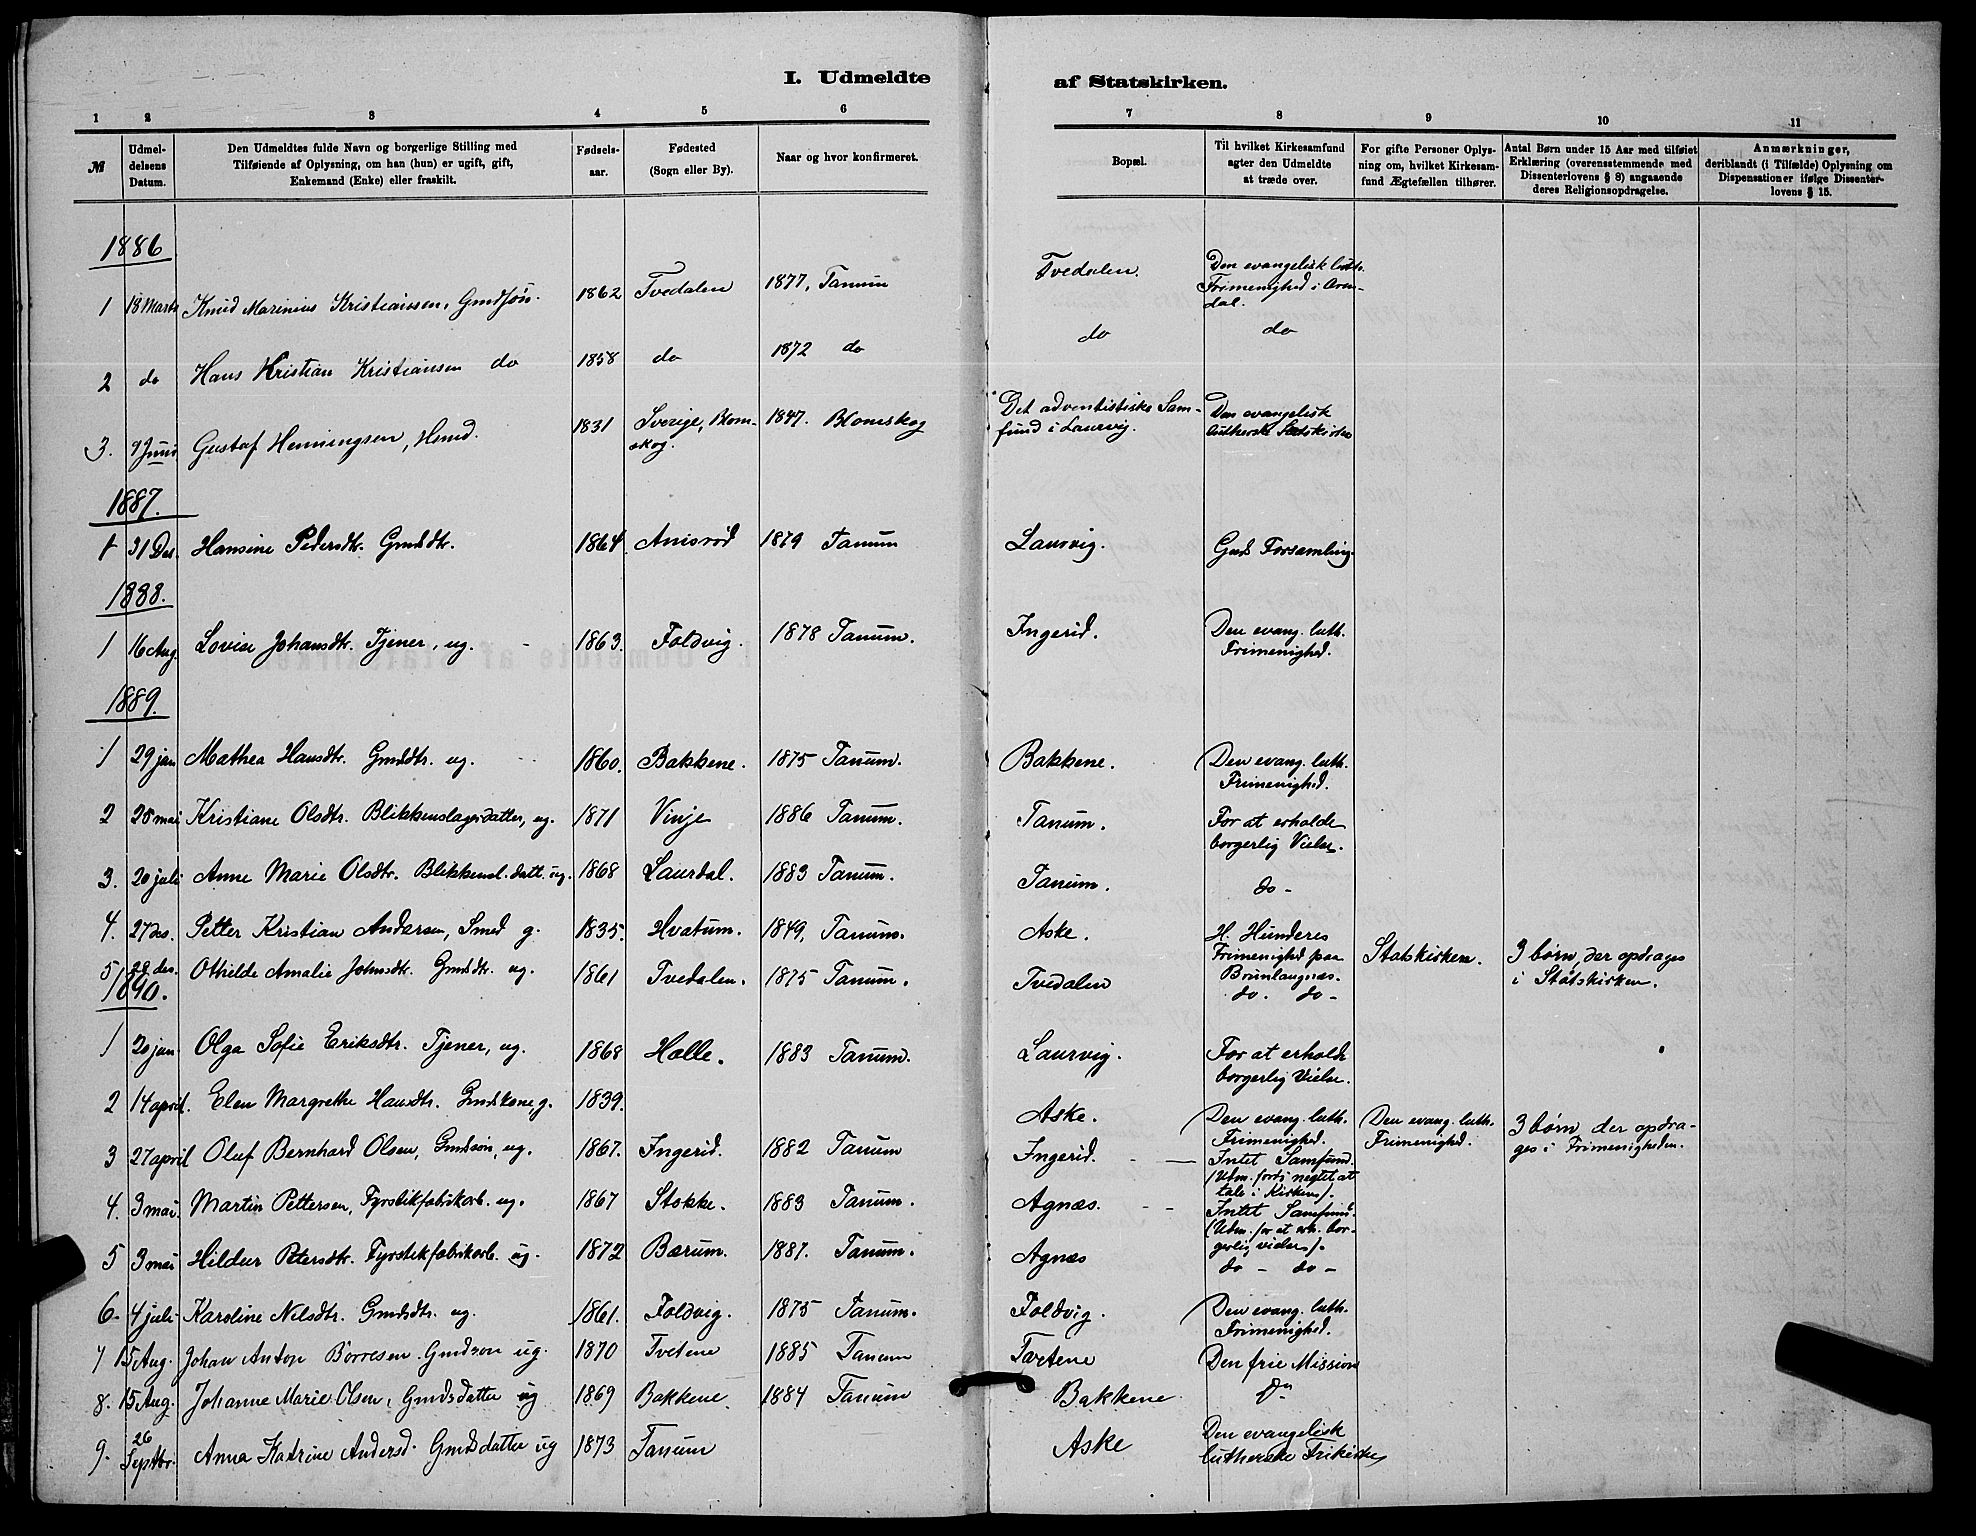 I. Udmeldte af Statskirken.
1 2 3 4 5 6 7 8 9 10 11
№
Udmel-
delsens
Datum.
Den Udmeldtes fulde Navn og borgerlige Stilling med
Tilføiende af Oplysning, om han (hun) er ugift, gift,
Enkemand (Enke) eller fraskilt.
Fødsels-
aar.
Fødested
(Sogn eller By).
Naar og hvor konfirmeret.
Bopæl.
Til hvilket Kirkesamfund
agter den Udmeldte
at træde over.
For gifte Personer Oplys-
ning om, hvilket Kirkesam-
fund Ægtefællen tilhører.
Antal Børn under 15 Aar med tilføiet
Erklæring (overensstemmende med
Dissenterlovens § 8) angaaende
deres Religionsopdragelse.
Anmærkninger,
deriblandt (i Tilfælde) Oplysning om
Dispensationer ifølge Dissenter-
lovens § 15.
1886
1 18 Marts Knud Marinius Kristianssen, Gmdsøn. 1862 Tvedalen 1877, Tanum Tvedalen. Den evangelisk luth.
Frimenighed i Aren-
dal.
2 do Hans Kristian Kristiansen do 1858 do 1872 do do do
3. 9 Juni Gustaf Henningsen, Hmd. 1831 Sverige, Blom-
skog. 1847. Blomskog Det adventistiske Sam-
fund i Laurvig. Den evangelisk
lutherske Statskirke
1887.
1 31 Des. Hansine Pedersdtr. Gmdsdtr. 1864. Anisrød 1879 Tanum Laurvig. Guds Forsamling.
1888.
1 16 Aug. Lovise Johansdtr. Tjener, ug. 1863. Foldvig. 1878 Tanum. Ingerid. Den evang. luth.
Frimenighed.
1889.
1 29 jan Mathea Hansdtr. Gmdsdtr. ug. 1860. Bakkene. 1875 Tanum. Bakkene. Den evang. luth.
Frimenighed.
2 28 mai Kristiane Olsdtr. Blikkenslagerdatter, ug. 1871 Vinje 1886 Tanum. Tanum. For at erholde
borgerlig Vielse.
3. 20 juli Anne Marie Olsdtr. Blikkensl. datt. ug. 1868 Laurdal. 1883 Tanum. Tanum. do -
4. 27 des. Petter Kristian Andersen, Smed g. 1835. Hvatum. 1849, Tanum. Aske. H. Hunderes
Frimenighed paa
Brunlangnæs. Statskirken. 3 børn, der opdrages
i Statskirken.
5 28 des. Othilde Amalie Johnsdtr. Gmdsdtr. ug. 1861 Tvedalen. 1875 Tanum. Tvedalen do. do -
1890.
1 20 jan Olga Sofie Eriksdtr. Tjener, ug. 1868 Halle. 1883 Tanum. Laurvig. For at erholde
borgerlig Vielse.
2 14 april. Elen Margrethe Hansdtr. Gmdskone, g. 1839. Aske. Den evang. luth.
Frimenighed. Den evang. luth.
Frimenighed. 3 børn, der opdra-
ges i Frimenigheden.
3 27 april Oluf Bernhard Olsen, Gmdsøn, ug. 1867. Ingerid. 1882 Tanum Ingerid. - — Intet Samfund.
(Udm. fordi negtet at
tale i Kirken).
4. 3 mai. Martin Pettersen, Fyrstikfabrikarb. ug. 1867 Stokke. 1883 Tanum. Agnæs. - - Intet Samfund.
(Udm. for at erh. bor-
gerlig vielse).
5 3 mai Hildur Petersdtr. Fyrstikfabrikarb. ug. 1872 Bærum. 1887. Tanum. Agnæs do - do -
6. 4 juli Karoline Nilsdtr. Gmdsdtr. ug. 1861. Foldvig. 1875 Tanum. Foldvig. Den evang. luth.
Frimenighed.
7 15 Aug. Johan Anton Børresen Gmdsøn ug. 1870 Tvetene 1885 Tanum Tvetene Den frie Mission
8. 15 Aug. Johanne Marie Olsen, Gmdsdatter ug 1869 Bakkene. 1884 Tanum Bakkene. Do
9. 26 Septbr. Anna Katrine Andersd. Gmdsdatter ug 1873 Tanum Aske Den evangelisk
lutherske Frikirke